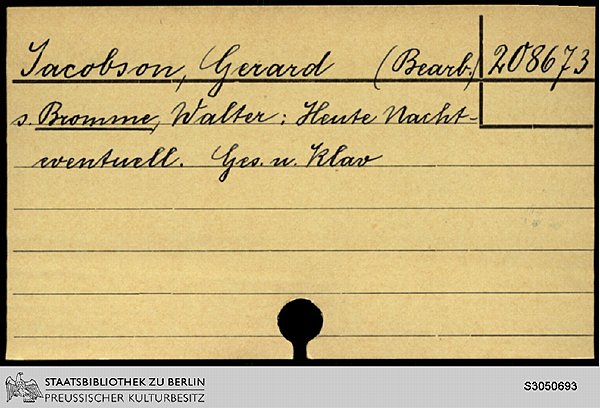 Jacobson, Gerard (Bearb.) 208673
s. Bromme, Walter: Heute Nacht-
eventuell. Ges. u. Klav
STAATSBIBLIOTHEK ZU BERLIN
PREUSSISCHER KULTURBESITZ
S3050693